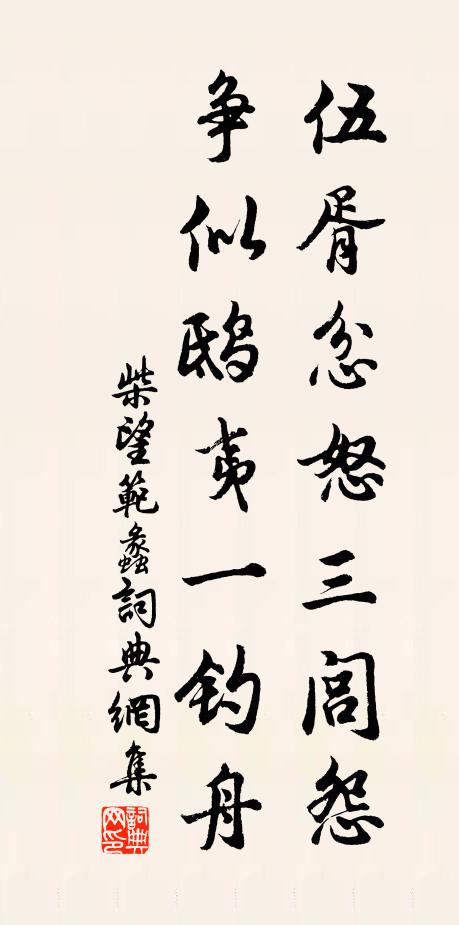 伍胥忿怒三闾怨
争似鸱夷一钓舟
柴望範蠡詞典網集
詞典网印